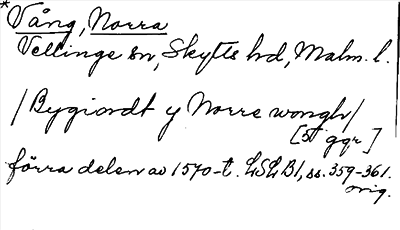 * Vång, Norra
Vellinge sn, Skytts hd, Malm. l.
/Bygiordt y Norre wongh/
[5 ggr]
förra delen av 1570-t. LSLB1, ss. 359-361.
orig.